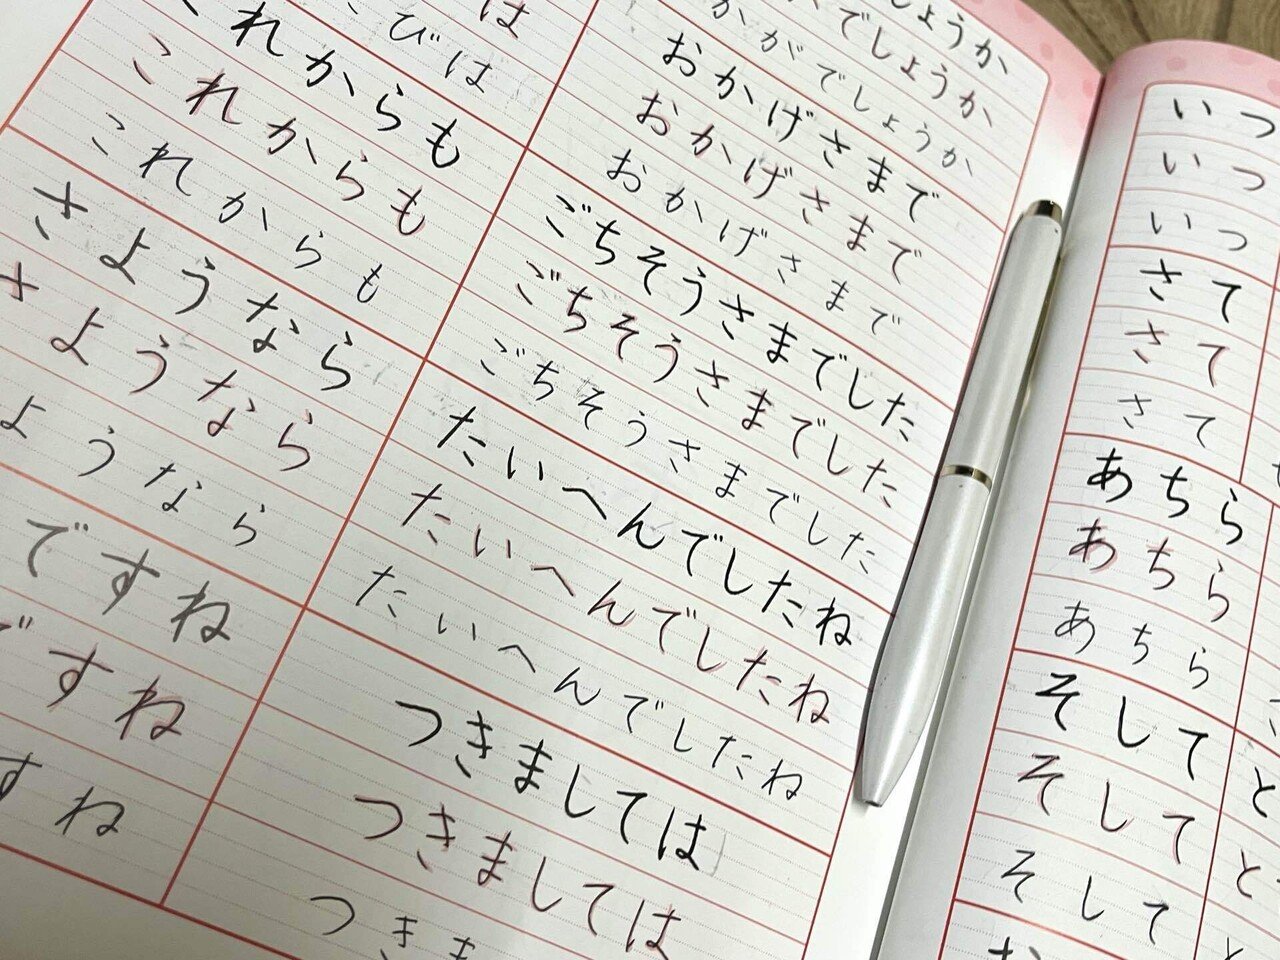 は
こびは
これからも
これからも
これからも
さようなら
さようなら
ようなら
ですね
ですね
すね
しょうか
かでしょうか
かがでしょうか
おかげさまで
おかげさまで
おかげさまで
ごちそうさまでした
ごちそうさまでした
ごちそうさまでした
たいへんでしたね
たいへんでしたね
たいへんでしたね
つきましては
つきましては
つきま
いつ
いつ
いつ
さて
さて
さて
あちら
あちら
あちら
そして
そして
そして
と
と